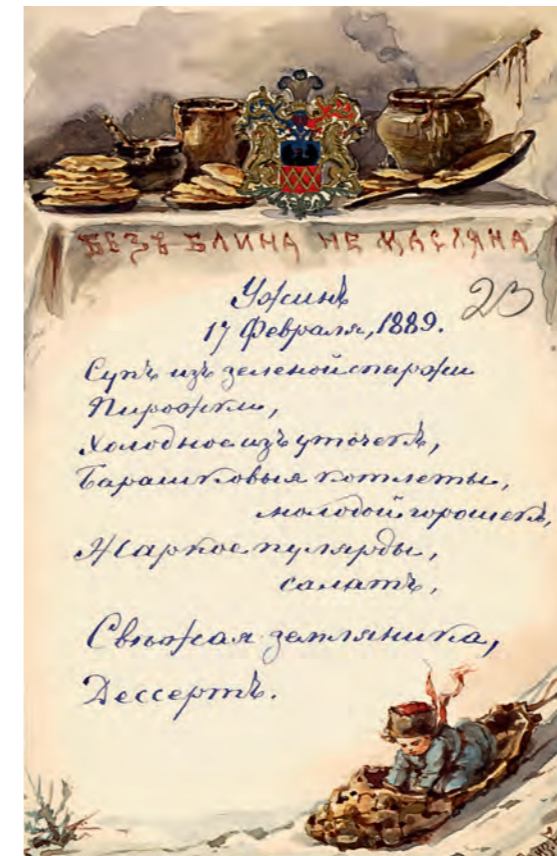 БЕЗЪ БЛИНА НЕ МАСЛЯНА
Ужинъ
23
17 Февраля, 1889.
Супъ изъ зеленой спаржи
Пирожки,
Холодное изъ уточекъ,
Барашковыя котлеты,
молодой горошекъ,
Жаркое пулярды,
салатъ,
Свѣжая земляника,
Дессертъ.